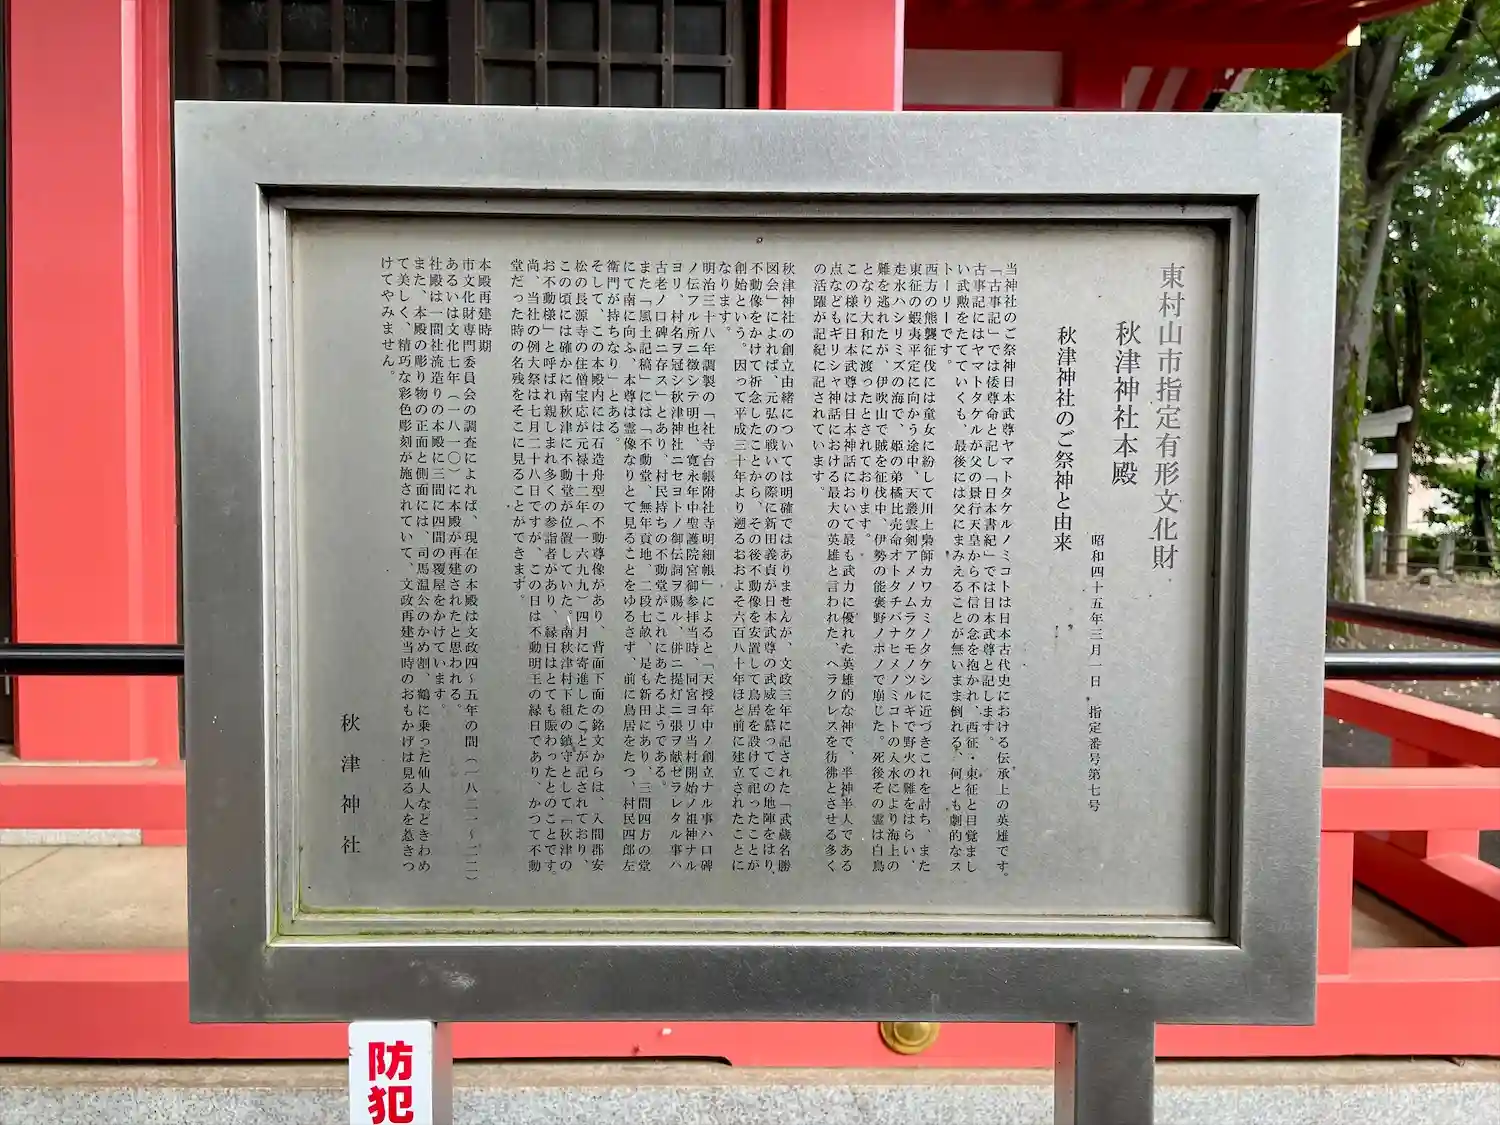 東村山市指定有形文化財
秋津神社本殿
昭和四十五年三月一日　指定番号第七号
秋津神社のご祭神と由来
当神社のご祭神日本武尊ヤマトタケルノミコトは日本古代史における伝承上の英雄です。
「古事記」では倭尊命と記し「日本書紀」では日本武尊と記します。
古事記にはヤマトタケルが父の景行天皇から不信の念を抱かれ、西征・東征と目覚まし
い武勲をたてていくも、最後には父にまみえることが無いまま倒れる、何とも劇的なス
トーリーです。
西方の熊襲征伐には童女に紛して川上梟師カワカミノタケシに近づきこれを討ち、また
東征の蝦夷平定に向かう途中、天叢雲剣アメノムラクモノツルギで野火の難をはらい、
走水ハシリミズの海で、姫の弟橘比売命オトタチバナヒメノミコトの入水により海上の
難を逃れたが、伊吹山で賊を征伐中、伊勢の能褒野ノボノで崩じた。死後その霊は白鳥
となり大和に渡ったとされております。
この様に日本武尊は日本神話において最も武力に優れた英雄的な神で、半神半人である
点などもギリシャ神話における最大の英雄と言われた、ヘラクレスを彷彿とさせる多く
の活躍が記紀に記されています。
秋津神社の創立由緒については明確ではありませんが、文政三年に記された「武蔵名勝
図会」によれば、元弘の戦いの際に新田義貞が日本武尊の武威を慕ってこの地陣をはり、
不動像をかけて祈念したことから、その後不動像を安置して鳥居を設けて祀ったことが
創始という。因って平成三十年より遡るおおよそ六百八十年ほど前に建立されたことに
なります。
明治三十八年調製の「社寺台帳附社寺明細帳」によると「天授年中ノ創立ナル事ハ口碑
ノ伝フル所ニ徴シテ明也、寛永年中聖護院宮御参拝当時、同宮ヨリ当村開始ノ祖神ナル
ヨリ、村名ヲ冠シ秋津神社ニセヨトノ御伝詞ヲ賜ル、併ニ提灯二張ヲ献ゼラレタル事ハ
古老ノ口碑ニ存ス」とあり、村民持ちの不動堂がこれにあたるようである。
また「風土記稿」には「不動堂、無年貢地、二段七畝、是も新田にあり、三間四方の堂
にて南に向ふ、本尊は霊像なりとて見ることをゆるさず、前に鳥居をたつ、村民四郎左
衛門が持ちなり」とある。
そして、この本殿内には石造舟型の不動尊像があり、背面下面の銘文からは、入間郡安
松の長源寺の住僧宝応が元禄十二年（一六九九）四月に寄進したことが記されており、
この頃には確かに南秋津に不動堂が位置していた。南秋津村下組の鎮守として「秋津の
お不動様」と呼ばれ親しまれ多くの参詣者があり、縁日はとても賑わったとのことです。
尚、当社の例大祭は七月二十八日ですが、この日は不動明王の縁日であり、かつて不動
堂だった時の名残をそこに見ることができます。
本殿再建時期
市文化財専門委員会の調査によれば、現在の本殿は文政四～五年の間（一八二一～二二）
あるいは文化七年（一八一〇）に本殿が再建されたと思われる。
社殿は一間社流造りの本殿に三間に四間の覆屋をかけています。
また、本殿の彫り物の正面と側面には、司馬温公のかめ割、鶴に乗った仙人などきわめ
て美しく、精巧な彩色彫刻が施されていて、文政再建当時のおもかげは見る人を惹きつ
けてやみません。
秋津神社
防犯